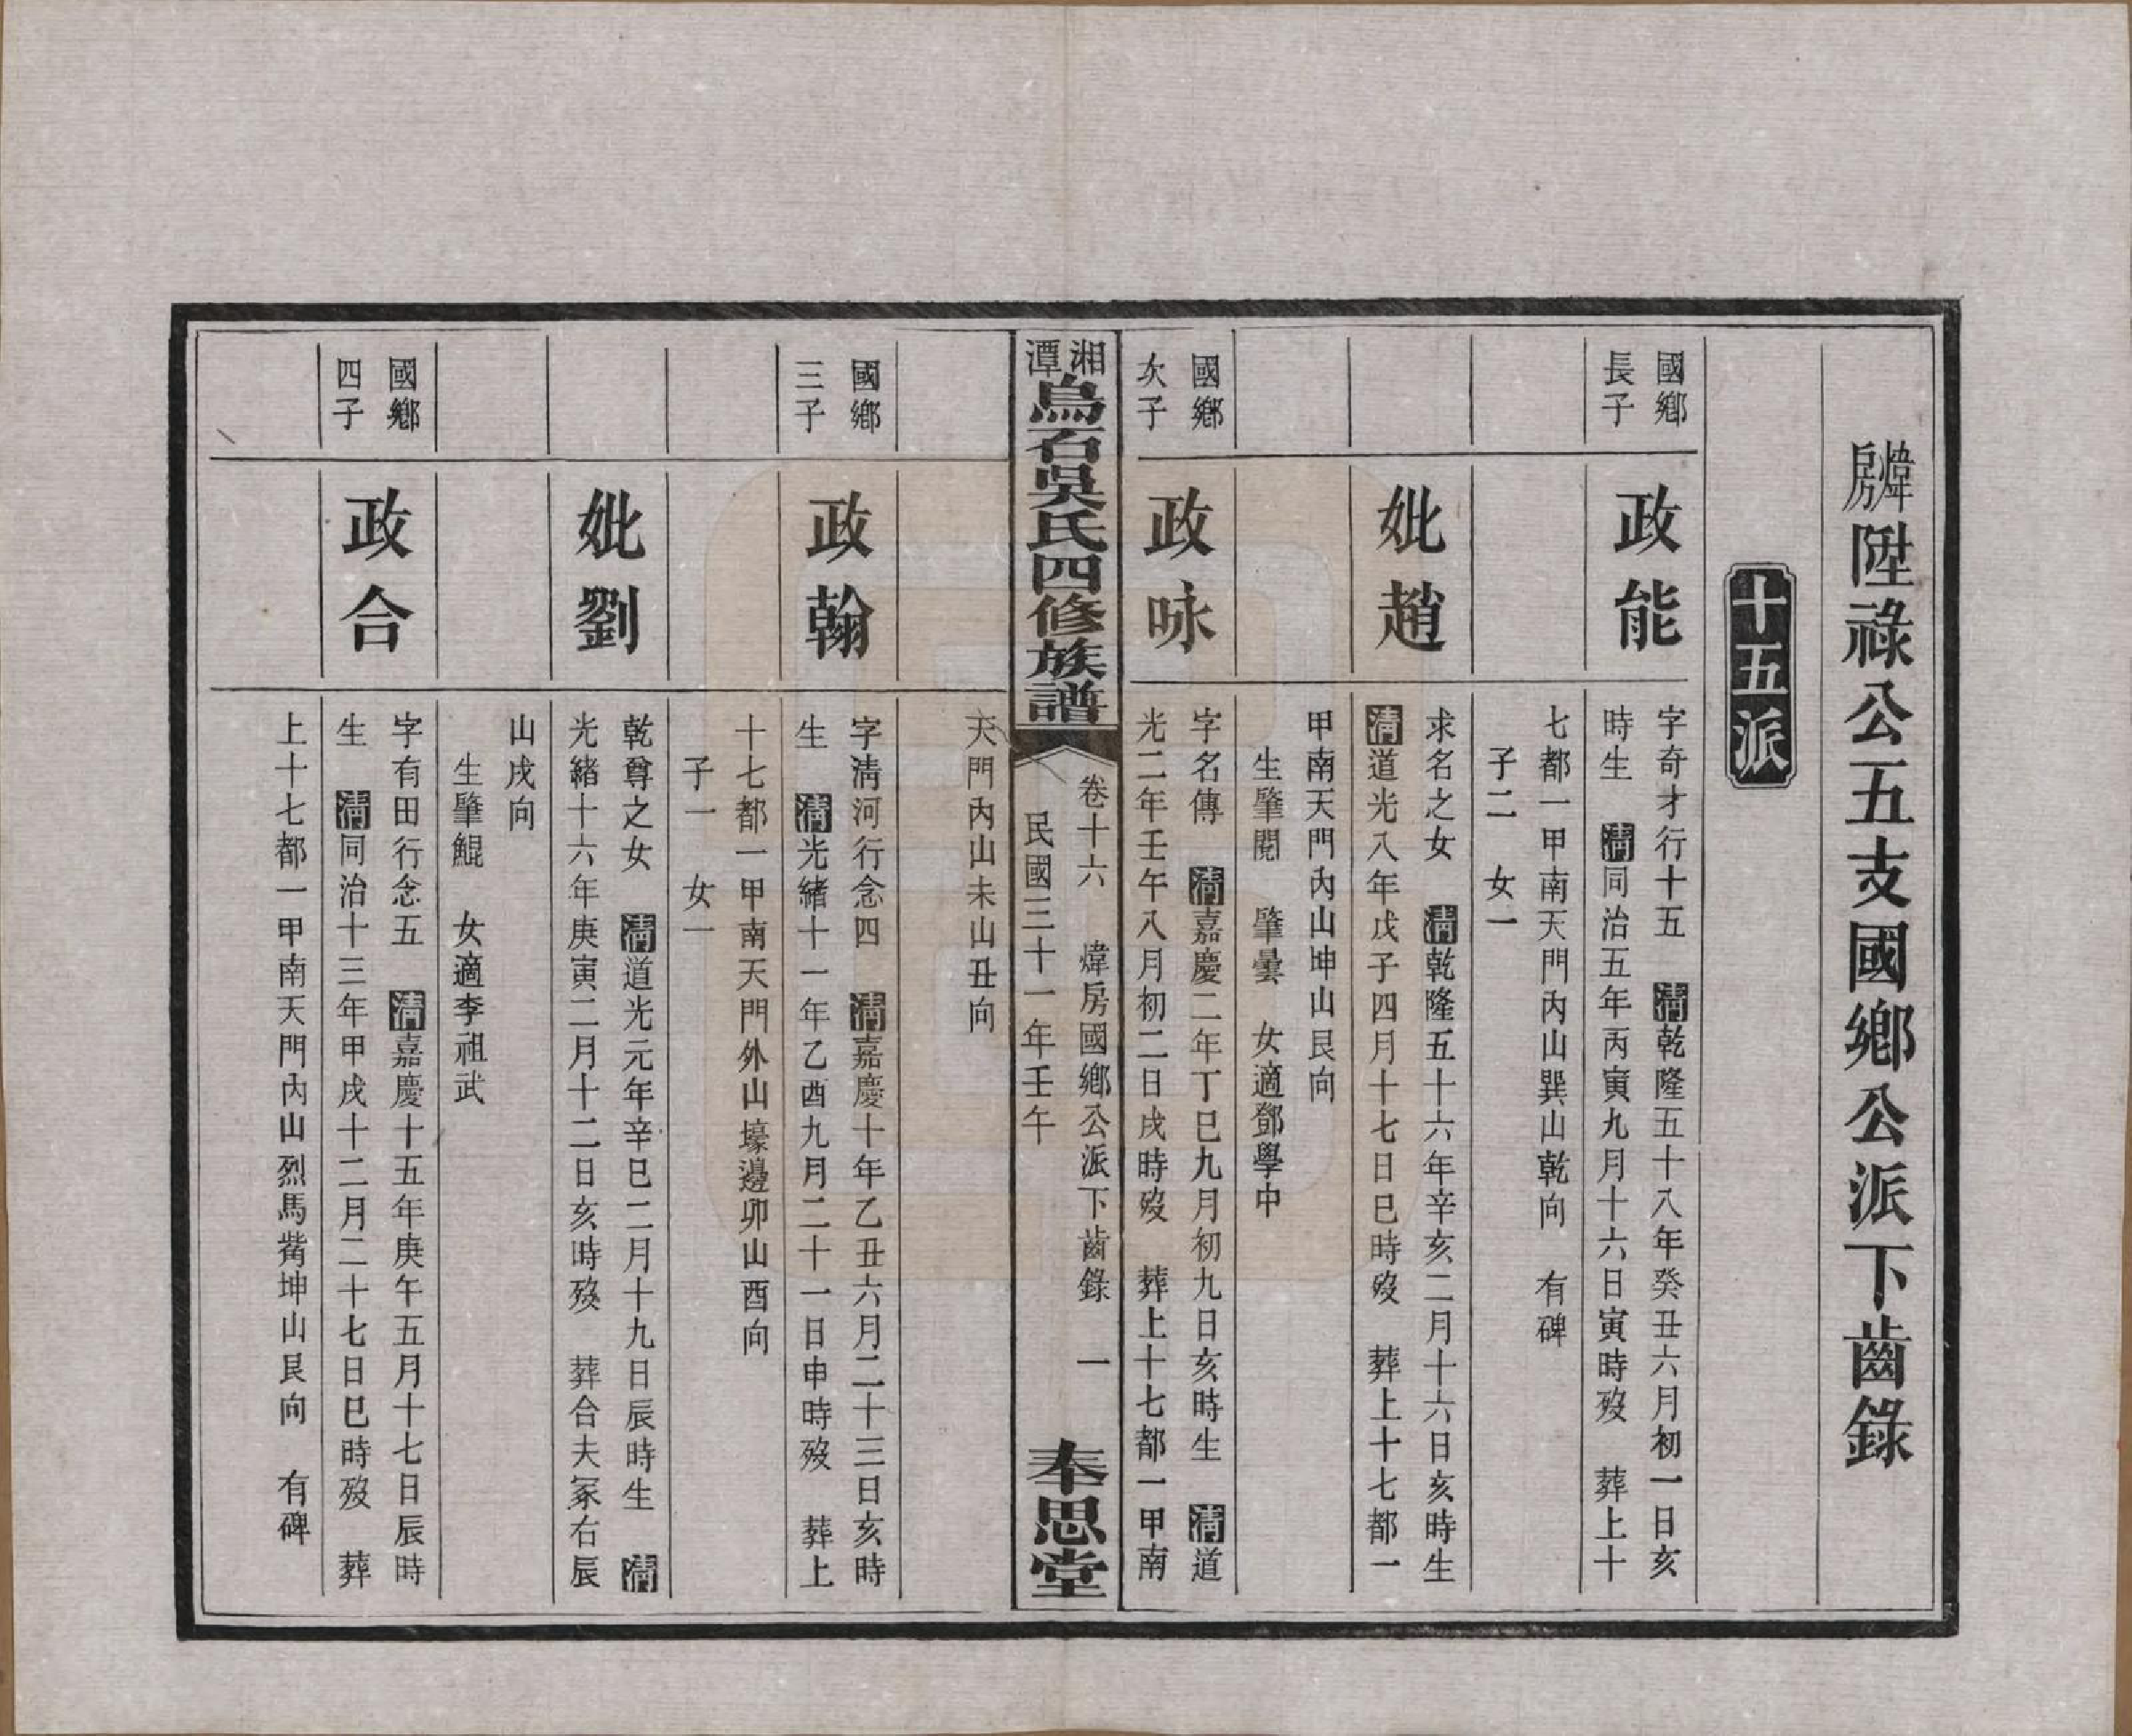 煒房陞祿公五支國鄉公派下齒錄
十五派
國鄉長子
政能
字奇才行十五 清乾隆五十八年癸丑六月初一日亥
時生 清同治五年丙寅九月十六日寅時歿 葬上十
七都一甲南天門內山巽山乾向 有碑
子二 女一
妣趙
求名之女 清乾隆五十六年辛亥二月十六日亥時生
清道光八年戊子四月十七日巳時歿 葬上十七都一
甲南天門內山坤山艮向
生肇閱 肇曇 女適鄧學中
國鄉次子
政咏
字名傳 清嘉慶二年丁巳九月初九日亥時生 清道
光二年壬午八月初二日戌時歿 葬上十七都一甲南
湘潭烏石吳氏四修族譜
卷十六 煒房國鄉公派下齒錄 一
民國三十一年壬午
奉思堂
天門內山未山丑向
國鄉三子
政翰
字清河行念四 清嘉慶十年乙丑六月二十三日亥時
生 清光緒十一年乙酉九月二十一日申時歿 葬上
十七都一甲南天門外山壕邊卯山酉向
子一 女一
妣劉
乾尊之女 清道光元年辛巳二月十九日辰時生 清
光緒十六年庚寅二月十二日亥時歿 葬合夫冢右辰
山戌向
生肇鯤 女適李祖武
國鄉四子
政合
字有田行念五 清嘉慶十五年庚午五月十七日辰時
生 清同治十三年甲戌十二月二十七日巳時歿 葬
上十七都一甲南天門內山烈馬觜坤山艮向 有碑